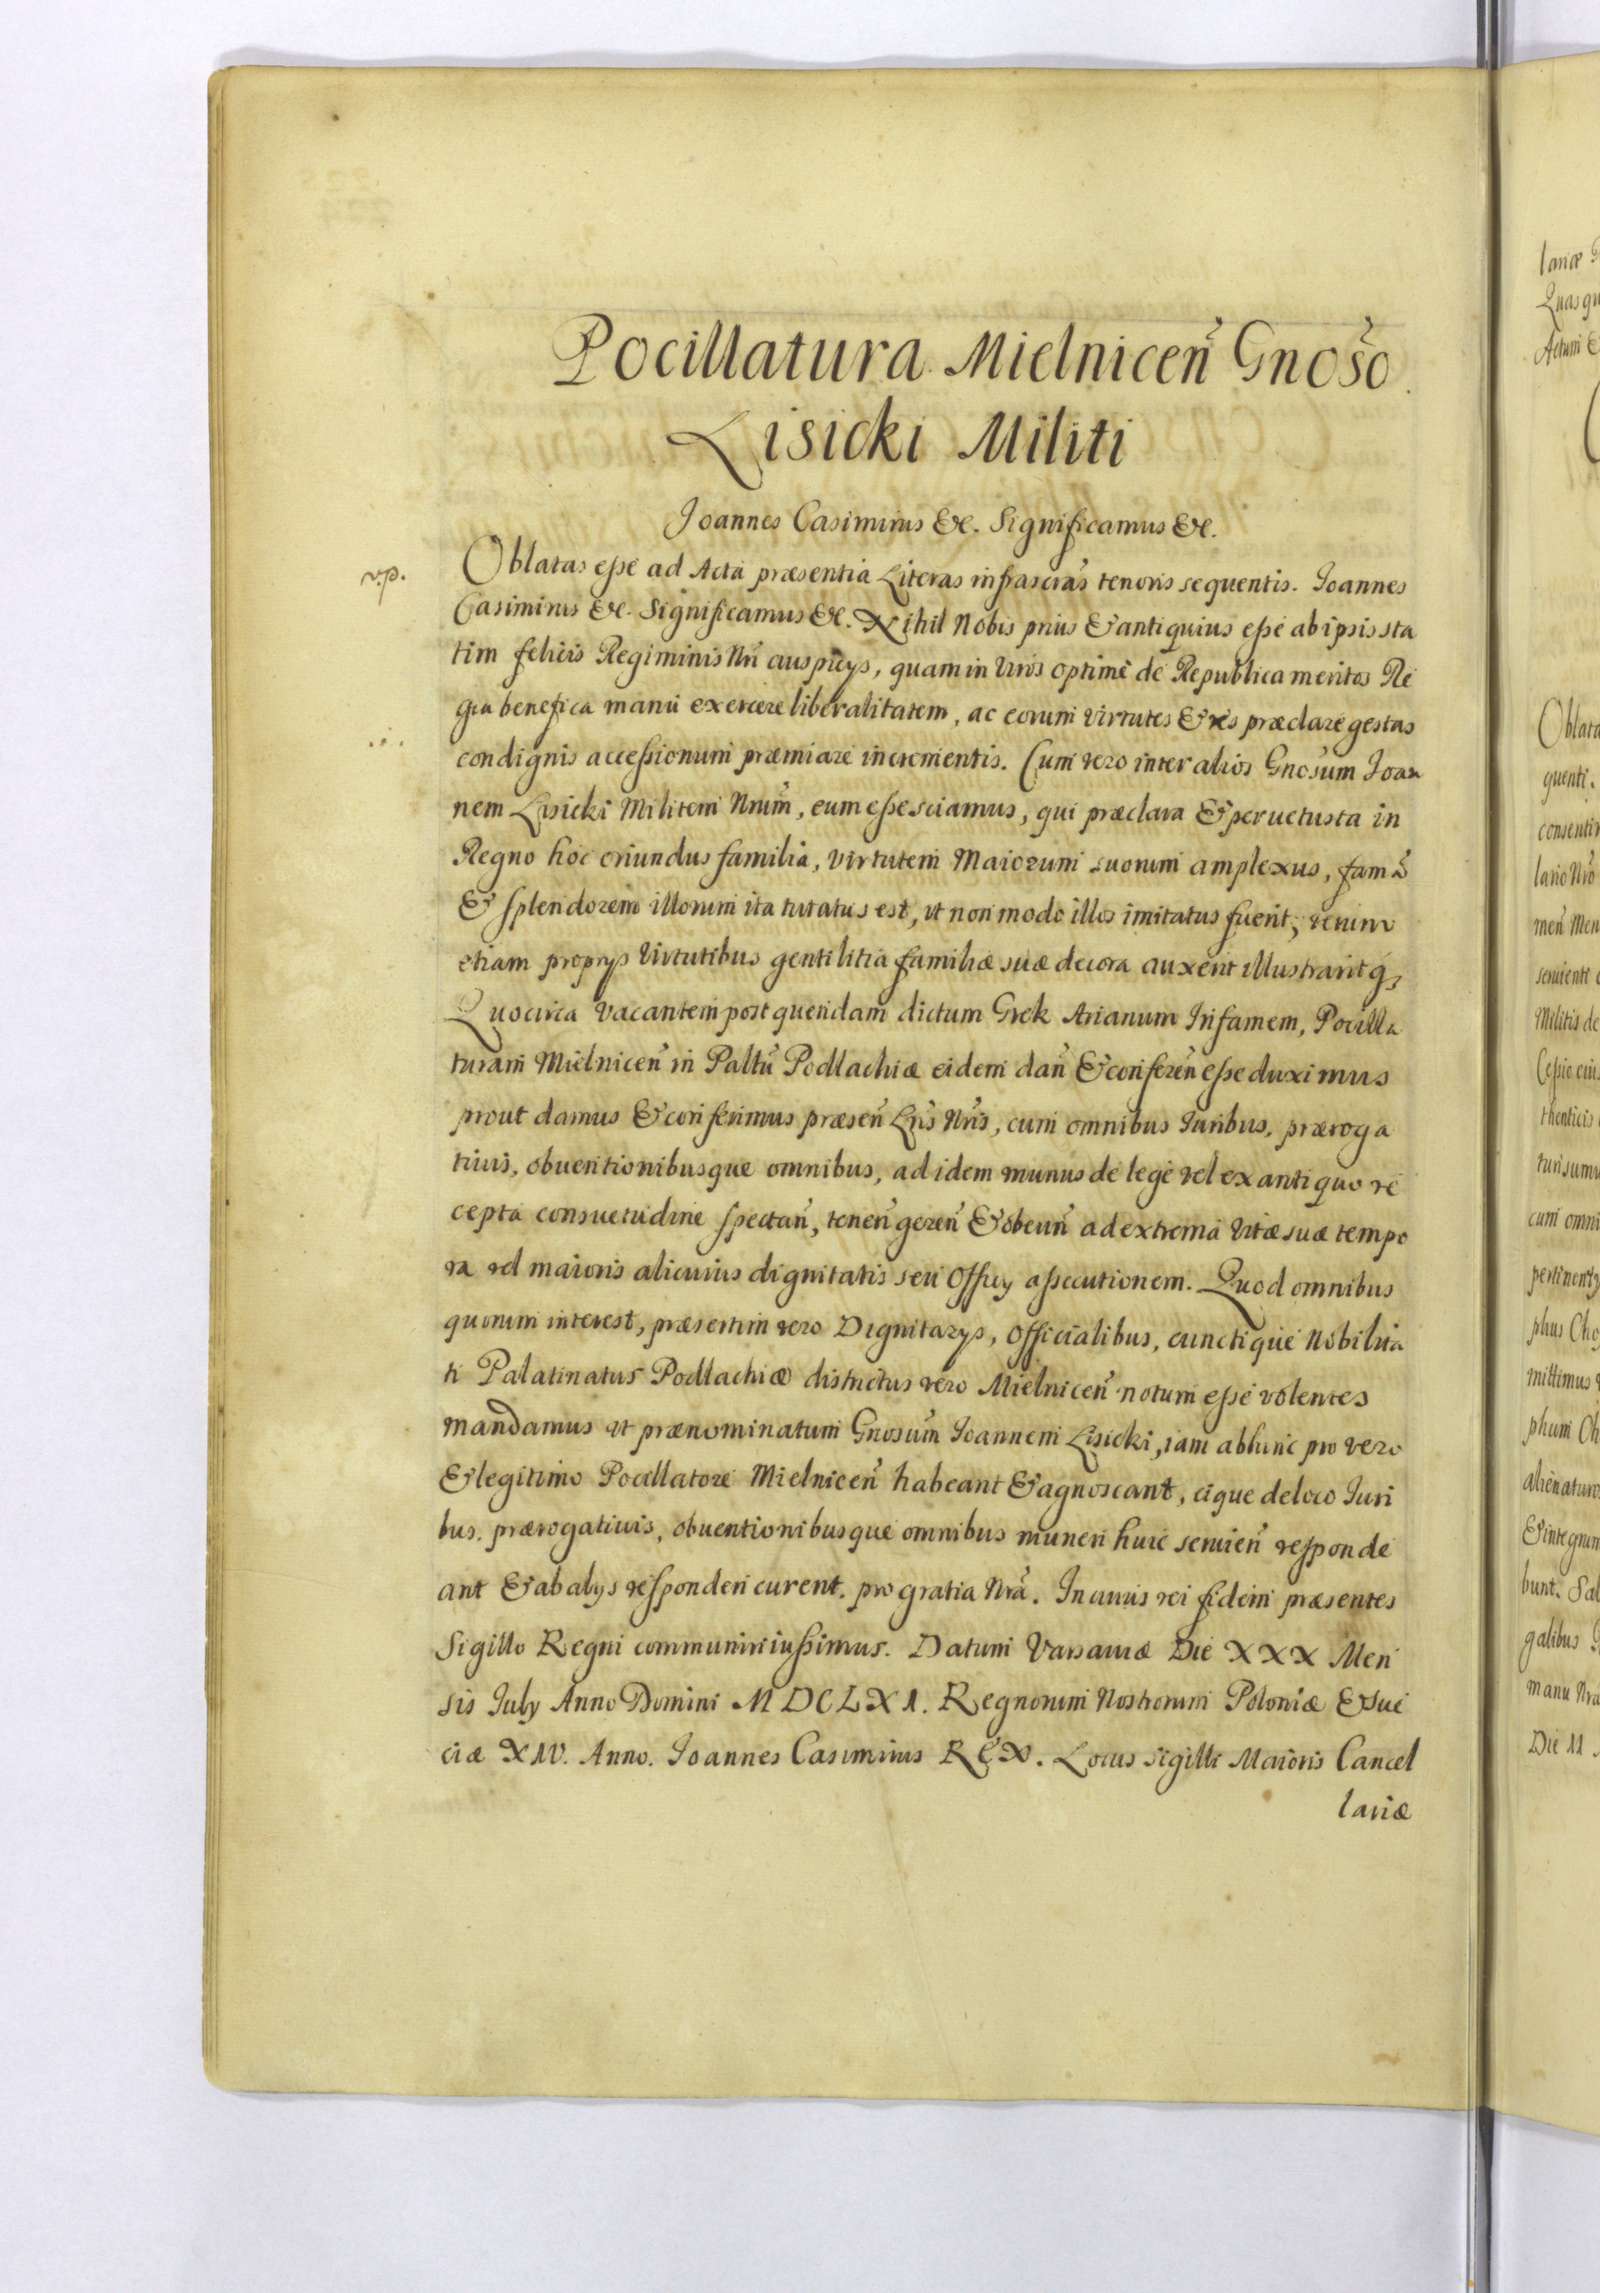 Pocillatura Mielniceñ Gnoso
Lisicki Militi
Joannes Casimirus &c. Significamus &c.
v.p.
Oblatas esse ad Acta præsentia Literas infrascras tenoris sequentis. Joannes
Casimirus &c. Significamus &c. Nihil Nobis prius & antiquius esse ab ipsis sta
tim felicis Regiminis Nri auspicys, quam in Viros optime de Republica meritos Re
gia benefica manu exercere liberalitatem, ac eorum virtutes & res præclare gestas
condignis accessionum præmiare incrementis. Cum vero inter alios Gnosum Joan
nem Lisicki Militem Nrum, eum esse sciamus, qui præclara & pervetusta in
Regno hoc oriundus familia, virtutem Maiorum suorum amplexus, famã
& splendorem illorum ita tutatus est, ut non modo illos imitatus fuerit, verum
etiam proprys Virtutibus gentilitia familiæ suæ decora auxerit illustraritq,
Quocirca vacantem post quendam dictum Grek Arianum Infamem, Pocilla
turam Mielniceñ in Paltu Podlachiæ eidem dañ & confereñ esse duximus
prout damus & conferimus præseñ Lris Nris, cum omnibus Iuribus, præroga
tivis, obventionibusque omnibus, ad idem munus de lege vel ex antiquo re
cepta consuetudine spectañ, teneñ gereñ & obeuñ ad extrema vitæ suæ tempo
ra vel maioris alicuius dignitatis seu Officy assecutionem. Quod omnibus
quorum interest, præsertim vero Dignitarys, Officialibus, cunctique Nobilita
ti Palatinatus Podlachiæ districtus vero Mielniceñ notum esse volentes
mandamus ut prænominatum Gnosum Joannem Lisicki, iam abhinc pro vero
& legitimo Pocillatore Mielniceñ habeant & agnoscant, eique de loco Iuri
bus, prærogativis, obventionibusque omnibus muneri huic servieñ responde
ant & ab alys responderi curent. pro gratia Nra. In cuius rei fidem præsentes
Sigillo Regni communiri iussimus. Datum Varsaviæ Die XXX Men
sis July Anno Domini MDCLXI. Regnorum Nostrorum Poloniæ & Sue
ciæ XIV. Anno. Joannes Casimirus REX. Locus Sigilli Maioris Cancel
lariæ